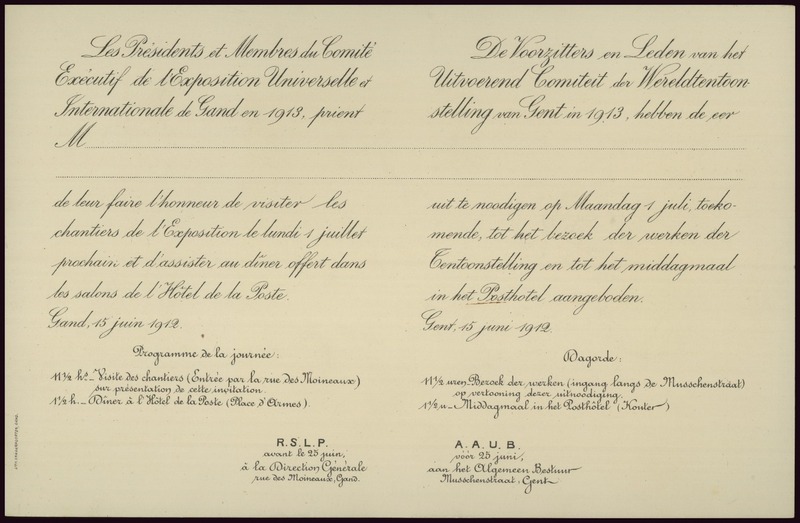 Les Présidents et Membres du Comité
Exécutif de l'Exposition Universelle et
Internationale de Gand en 1913, prient
M
de leur faire l'honneur de visiter les
chantiers de l'Exposition le lundi 1 juillet
prochain et d'assister au dîner offert dans
les salons de l'Hôtel de la Poste.
Gand, 15 juin 1912.
Programme de la journée:
11 1/2 hs_ Visite des chantiers (Entrée par la rue des Moineaux)
sur présentation de cette invitation
1 1/2 h._ Dîner à l'Hôtel de la Poste (Place d'Armes).
R.S.L.P.
avant le 25 juin,
à la Direction Générale
rue des Moineaux, Gand.
De Voorzitters en Leden van het
Uitvoerend Comiteit der Wereldtentoon-
stelling van Gent in 1913, hebben de eer
uit te noodigen op Maandag 1 juli, toeko-
mende, tot het bezoek der werken der
Tentoonstelling en tot het middagmaal
in het Posthotel aangeboden.
Gent, 15 juni 1912.
Dagorde:
11 1/2 uren Bezoek der werken (ingang langs de Musschenstraat)
op vertooning dezer uitnoodiging.
1 1/2 u_ Middagmaal in het Posthôtel (Kouter)
A.A.U.B.
vóór 25 juni,
aan het Algemeen Bestuur
Musschenstraat, Gent